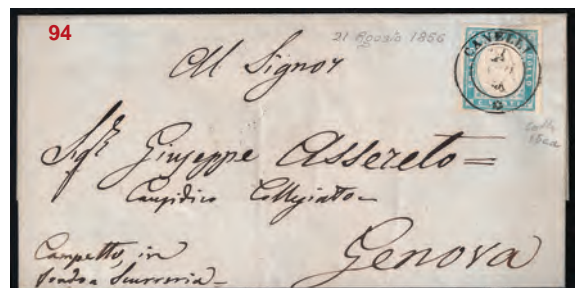 94
21 Agosto 1856
CANELLI
Al Signor
Sigr Giuseppe Assereto =
Causidico Collegiato –
Campetto, in
fondo a Scurreria –
Genova